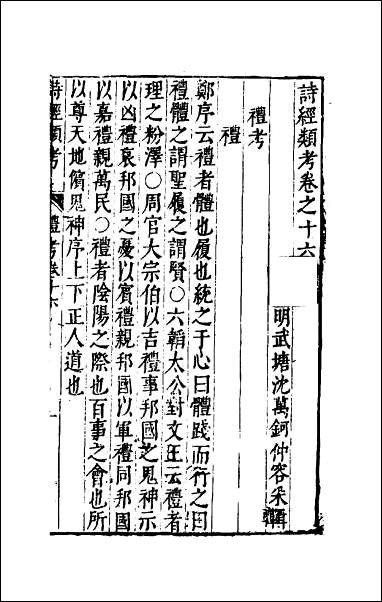 詩經類考卷之十六
明武塘沈萬鈳仲容采輯
禮考
禮
鄭序云禮者體也履也統之于心曰體踐而行之曰
禮體之謂聖履之謂賢○六韜太公對文王云禮者
理之粉澤○周官大宗伯以吉禮事邦國之鬼神示
以凶禮哀邦國之憂以賓禮親邦國以軍禮同邦國
以嘉禮親萬民○禮者陰陽之際也百事之會也所
以尊天地儐鬼神序上下正人道也
詩經類考 禮考卷十六